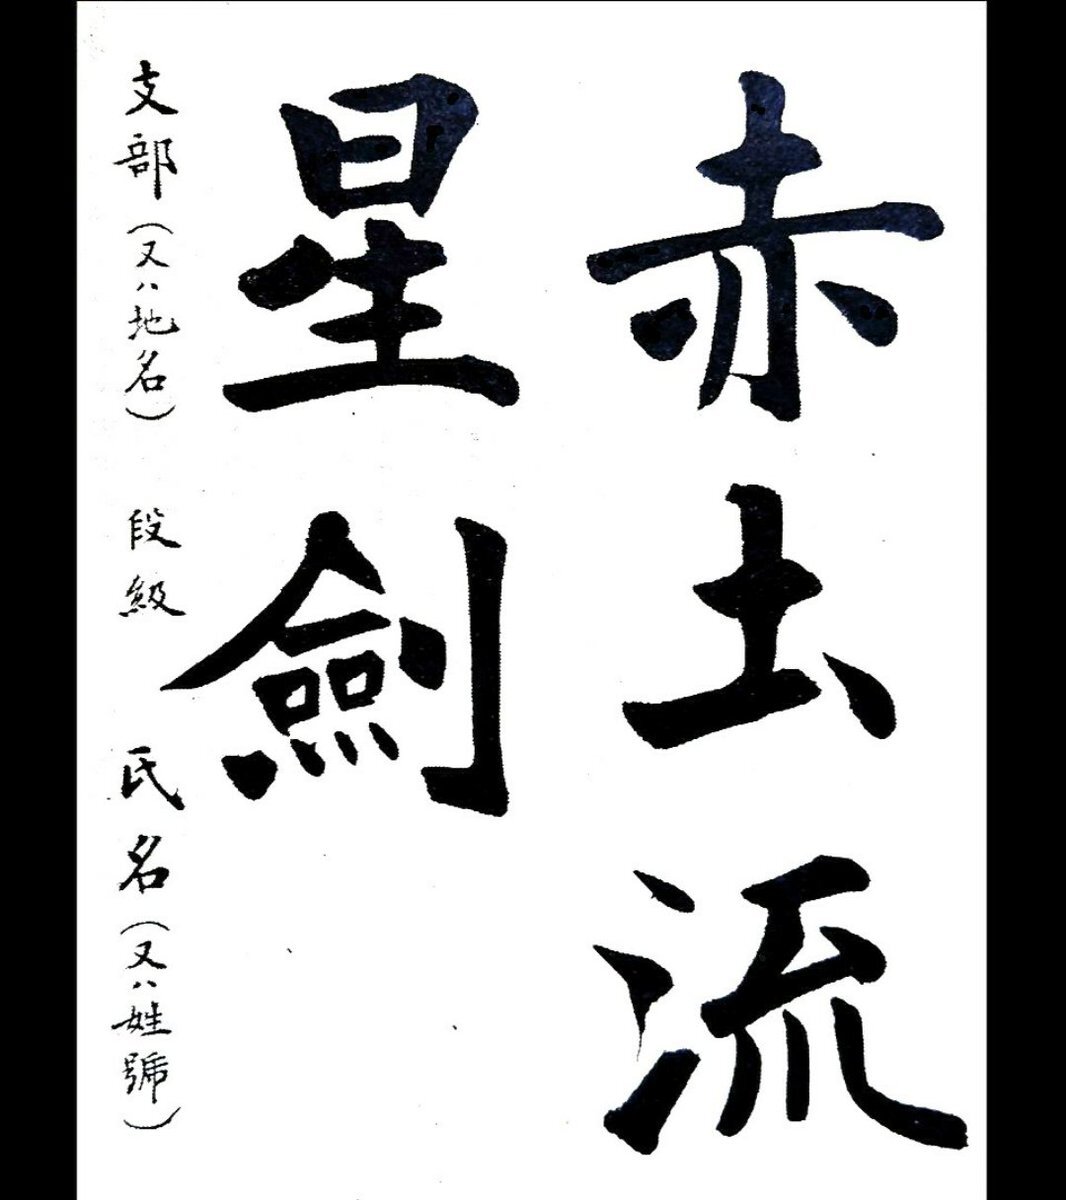 赤土流
星劍
支部（又ハ地名）　段級　氏名（又ハ姓號）